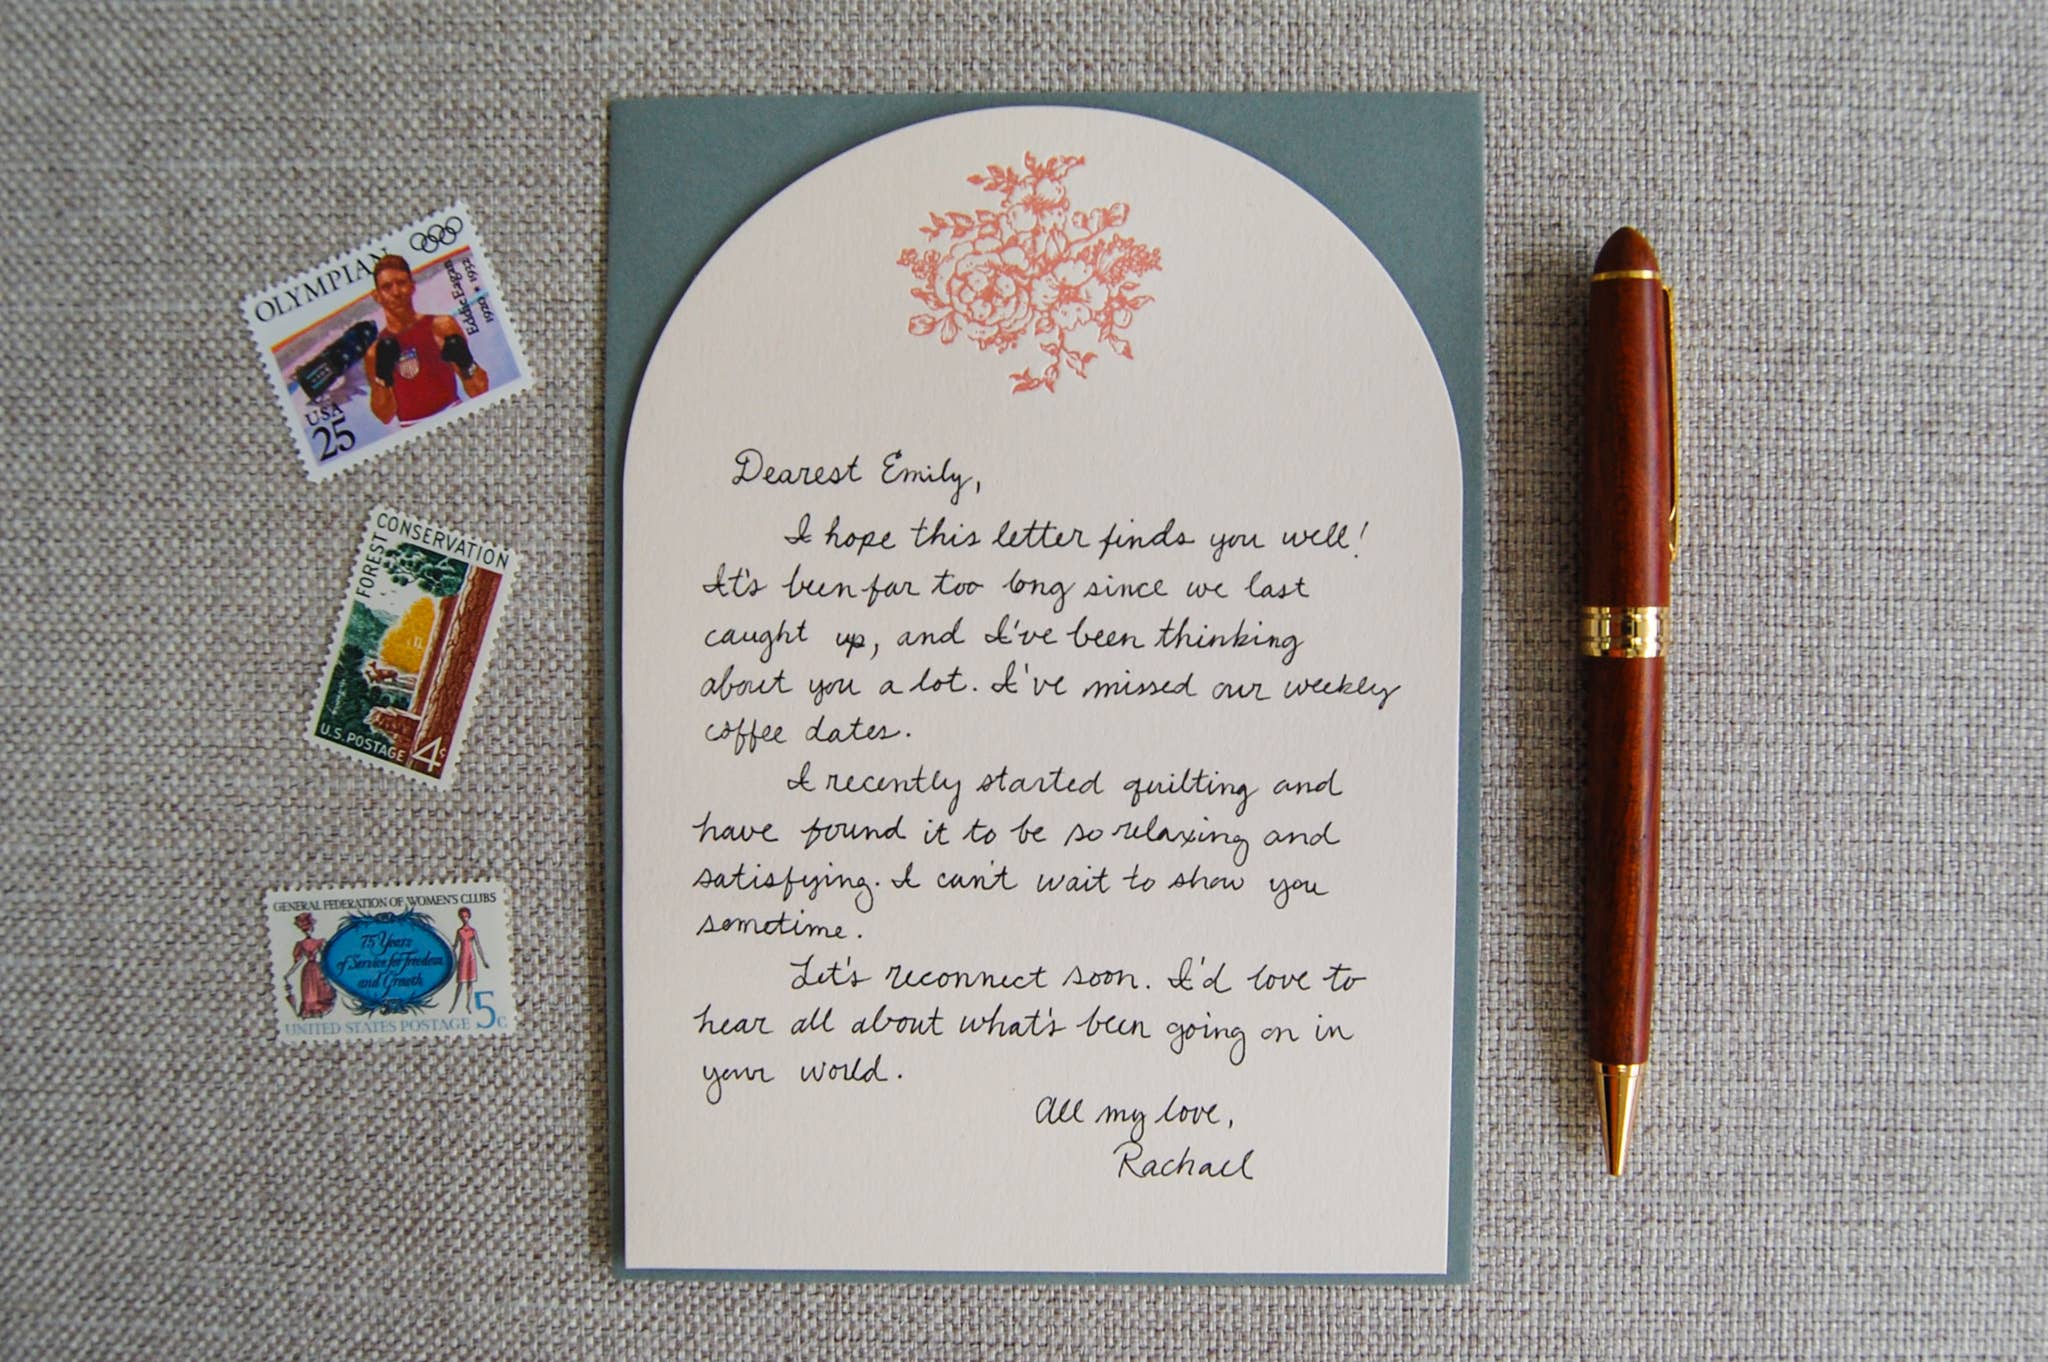 OLYMPIAN
Eddie Eagan
1920 * 1932
USA
25
FOREST CONSERVATION
U.S. POSTAGE 4¢
GENERAL FEDERATION OF WOMEN'S CLUBS
75 Years
of Service for Freedom
and Growth
UNITED STATES POSTAGE 5c
Dearest Emily,
I hope this letter finds you well!
It's been far too long since we last
caught up, and I've been thinking
about you a lot. I've missed our weekly
coffee dates.
I recently started quilting and
have found it to be so relaxing and
satisfying. I can't wait to show you
sometime.
Let's reconnect soon. I'd love to
hear all about what's been going on in
your world.
All my love,
Rachael